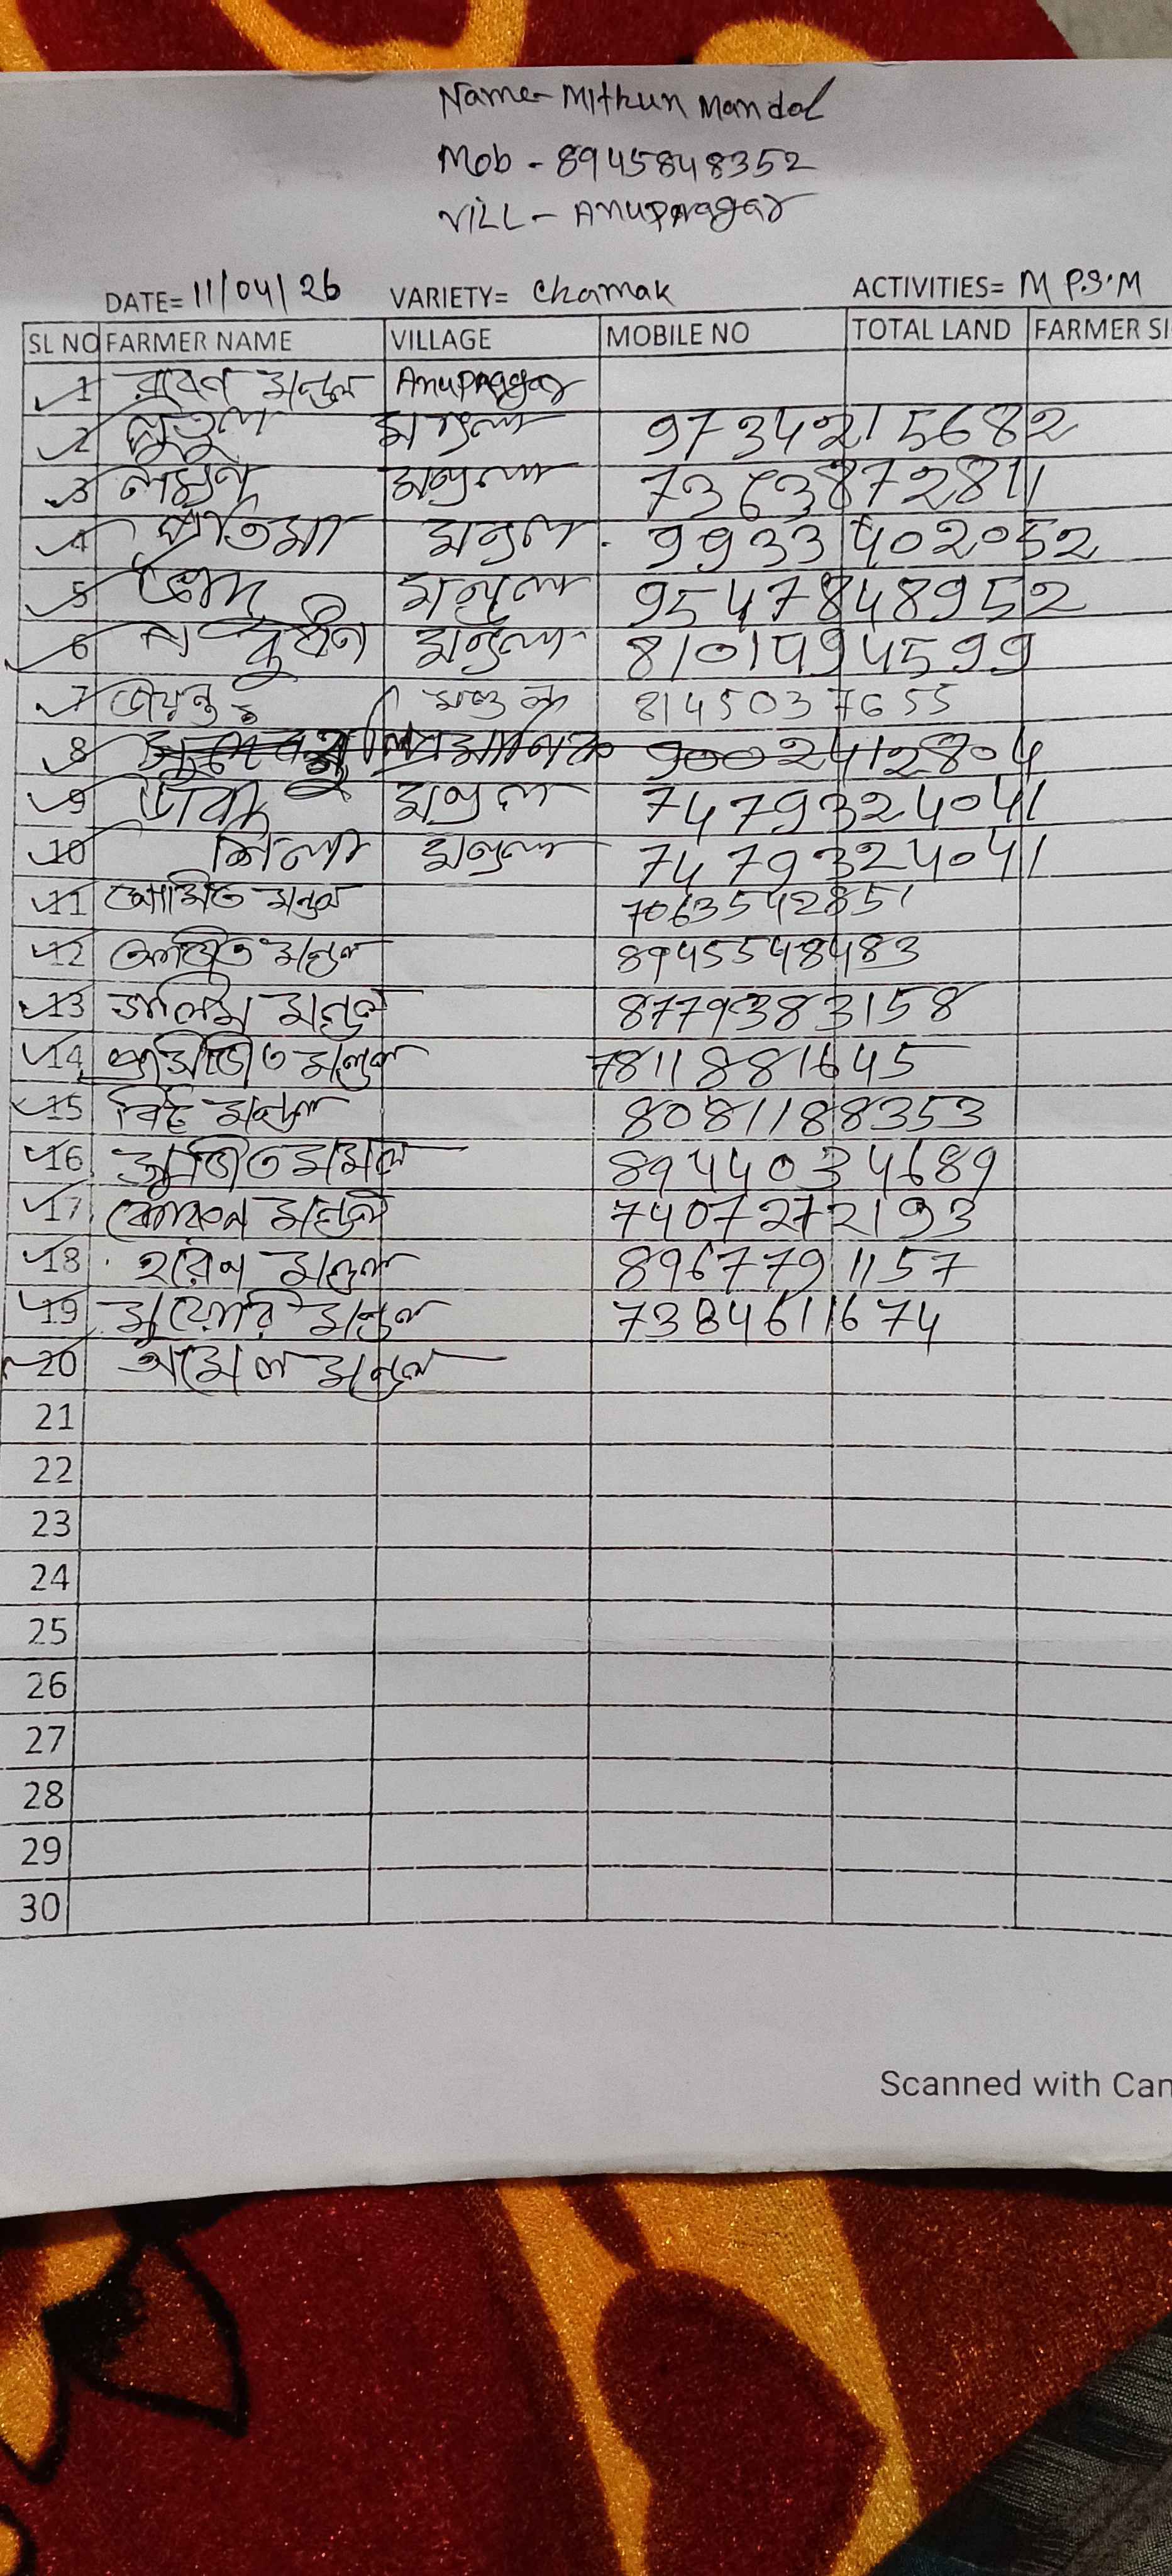 Name- Mithun Mandal
Mob - 8945848352
VILL - Anupnagar
DATE= 11/04/26 VARIETY= Chamak ACTIVITIES= M P.S.M
SL NO FARMER NAME VILLAGE MOBILE NO TOTAL LAND FARMER SI
1 মন্ডল Anupnagar
2 পুতুল মন্ডল 9734215682
3 লক্ষন মন্ডল 7363872811
4 প্রতিমা মন্ডল 9933402052
5 মন্ডল 9547848952
6 মন্ডল 8101494599
7 জয়ন্ত মণ্ডল 8145037655
8 9002412804
9 মন্ডল 7479324041
10 শিলা মন্ডল 7479324041
11 মন্ডল 7063542851
12 মন্ডল 8945548483
13 মন্ডল 8779383158
14 মন্ডল 7811881645
15 মন্ডল 8081188353
16 সুজিত মন্ডল 8944034689
17 মন্ডল 7407272193
18 হরেণ মন্ডল 8967791157
19 মন্ডল 7384611674
20 মন্ডল
21
22
23
24
25
26
27
28
29
30
Scanned with Can